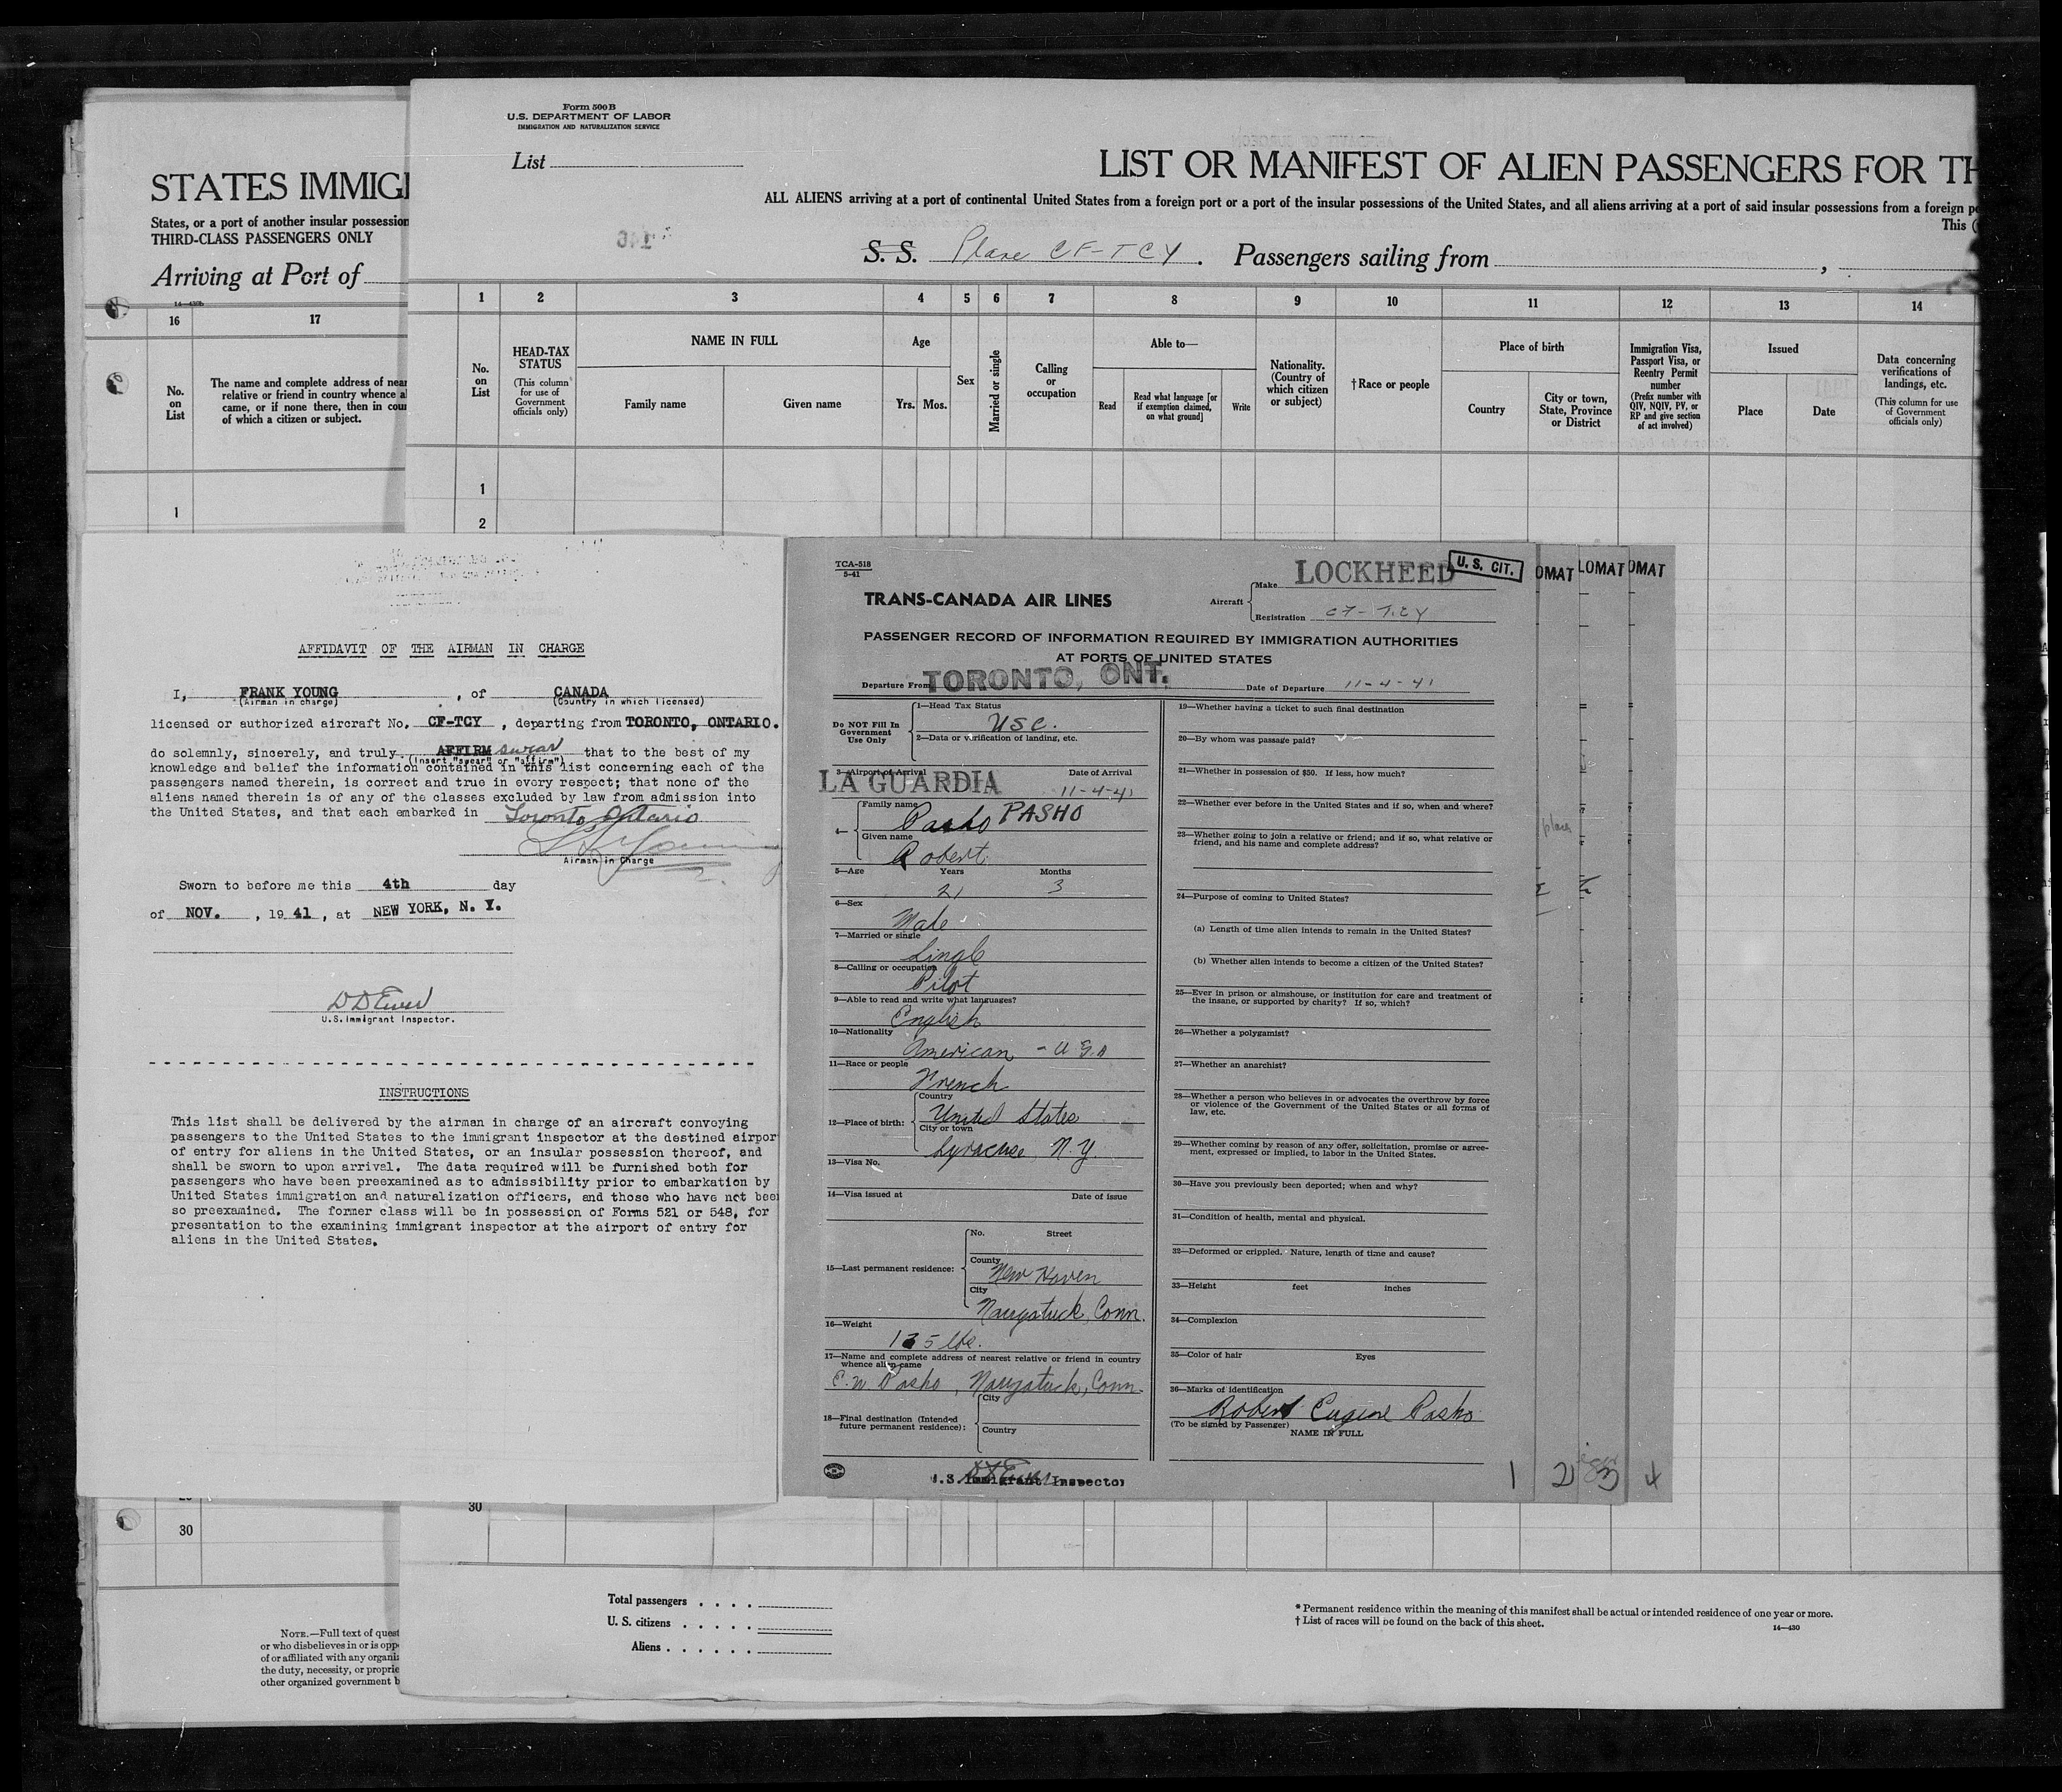 STATES IMMIG
States, or a port of another insular possession
THIRD-CLASS PASSENGERS ONLY
Arriving at Port of
14—430b
16 17
No. on List
The name and complete address of near
relative or friend in country whence a
came, or if none there, then in cou
of which a citizen or subject.
1
30
NOTE.—Full text of quest
or who disbelieves in or is opp
of or affiliated with any organi
the duty, necessity, or proprie
other organized government b
Form 500 B
U.S. DEPARTMENT OF LABOR
IMMIGRATION AND NATURALIZATION SERVICE
List
LIST OR MANIFEST OF ALIEN PASSENGERS FOR TH
ALL ALIENS arriving at a port of continental United States from a foreign port or a port of the insular possessions of the United States, and all aliens arriving at a port of said insular possessions from a foreign po
This (
S. S. Plane CF-TCY . Passengers sailing from ,
1 2 3 4 5 6 7 8 9 10 11 12 13 14
No. on List
HEAD-TAX STATUS
(This column for use of Government officials only)
NAME IN FULL
Family name
Given name
Age
Yrs. Mos.
Sex
Married or single
Calling or occupation
Able to—
Read
Read what language [or if exemption claimed, on what ground]
Write
Nationality. (Country of which citizen or subject)
†Race or people
Place of birth
Country
City or town, State, Province or District
Immigration Visa, Passport Visa, or Reentry Permit number
(Prefix number with QIV, NQIV, PV, or RP and give section of act involved)
Issued
Place
Date
Data concerning verifications of landings, etc.
(This column for use of Government officials only)
1
2
30
Total passengers . . . .
U. S. citizens . . . . .
Aliens . . . . . .
* Permanent residence within the meaning of this manifest shall be actual or intended residence of one year or more.
† List of races will be found on the back of this sheet.
14—430
AFFIDAVIT OF THE AIRMAN IN CHARGE
I, FRANK YOUNG , of CANADA
(Airman in charge) (Country in which licensed)
licensed or authorized aircraft No. CF-TCY , departing from TORONTO, ONTARIO.
do solemnly, sincerely, and truly AFFIRM swear that to the best of my
(Insert "swear" or "affirm")
knowledge and belief the information contained in this list concerning each of the
passengers named therein, is correct and true in every respect; that none of the
aliens named therein is of any of the classes excluded by law from admission into
the United States, and that each embarked in Toronto, Ontario
Airman in Charge
Sworn to before me this 4th day
of NOV. , 19 41 , at NEW YORK, N. Y.
U.S.Immigrant Inspector.
INSTRUCTIONS
This list shall be delivered by the airman in charge of an aircraft conveying
passengers to the United States to the immigrant inspector at the destined airpor
of entry for aliens in the United States, or an insular possession thereof, and
shall be sworn to upon arrival. The data required will be furnished both for
passengers who have been preexamined as to admissibility prior to embarkation by
United States immigration and naturalization officers, and those who have not bee
so preexamined. The former class will be in possession of Forms 521 or 548, for
presentation to the examining immigrant inspector at the airport of entry for
aliens in the United States.
TCA-518
5-41
TRANS-CANADA AIR LINES
Aircraft
Make LOCKHEED
U. S. CIT.
OMAT
LOMAT
OMAT
Registration CF-TCY
PASSENGER RECORD OF INFORMATION REQUIRED BY IMMIGRATION AUTHORITIES
AT PORTS OF UNITED STATES
Departure From TORONTO, ONT. Date of Departure 11-4-41
Do NOT Fill In Government Use Only
1—Head Tax Status
USC.
2—Data or verification of landing, etc.
3—Airport of Arrival Date of Arrival
LA GUARDIA 11-4-41
4—
Family name
Pasho PASHO
Given name
Robert
5—Age Years Months
21 3
6—Sex
Male
7—Married or single
Single
8—Calling or occupation
Pilot
9—Able to read and write what languages?
English
10—Nationality
American - USA
11—Race or people
French
12—Place of birth:
Country
United States
City or town
Syracuse N.Y.
13—Visa No.
14—Visa issued at Date of issue
15—Last permanent residence:
No. Street
County
New Haven
City
Naugatuck, Conn.
16—Weight
135 lbs.
17—Name and complete address of nearest relative or friend in country
whence alien came
E.W Pasho, Naugatuck, Conn.
18—Final destination (Intended
future permanent residence):
City
Country
U.S. Immigrant Inspector
19—Whether having a ticket to such final destination
20—By whom was passage paid?
21—Whether in possession of $50. If less, how much?
22—Whether ever before in the United States and if so, when and where?
23—Whether going to join a relative or friend; and if so, what relative or
friend, and his name and complete address?
24—Purpose of coming to United States?
(a) Length of time alien intends to remain in the United States?
(b) Whether alien intends to become a citizen of the United States?
25—Ever in prison or almshouse, or institution for care and treatment of
the insane, or supported by charity? If so, which?
26—Whether a polygamist?
27—Whether an anarchist?
28—Whether a person who believes in or advocates the overthrow by force
or violence of the Government of the United States or all forms of
law, etc.
29—Whether coming by reason of any offer, solicitation, promise or agree-
ment, expressed or implied, to labor in the United States.
30—Have you previously been deported; when and why?
31—Condition of health, mental and physical.
32—Deformed or crippled. Nature, length of time and cause?
33—Height feet inches
34—Complexion
35—Color of hair Eyes
36—Marks of identification
Robert Eugene Pasho
(To be signed by Passenger)
NAME IN FULL
1 2 3 4